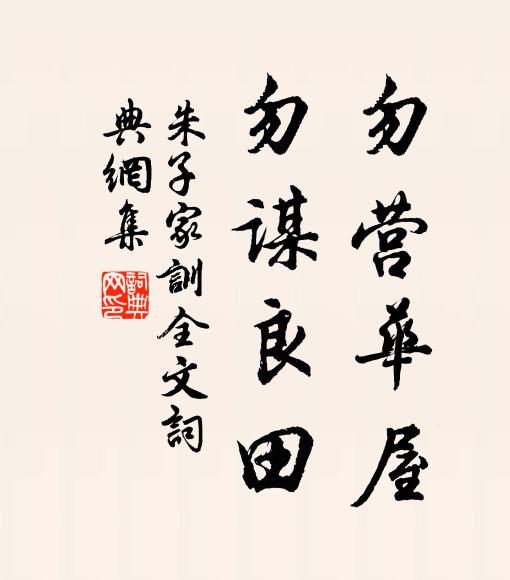 勿营華屋
勿谋良田
朱子家訓全文詞
典網集
詞典
网印